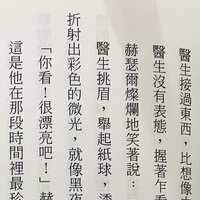 醫生接過東西，比想像
醫生沒有表態，握著乍看
赫瑟爾燦爛地笑著說：
醫生挑眉，舉起紙球，透
折射出彩色的微光，就像黑夜
「你看！很漂亮吧！」赫
這是他在那段時間裡最珍